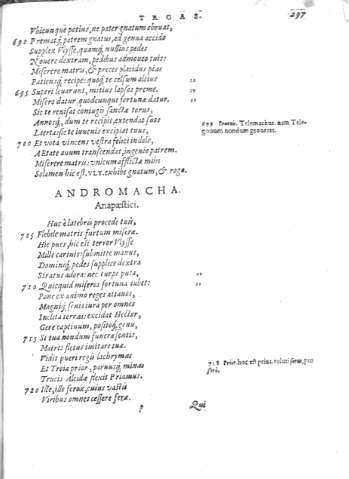 TROAS. 297
Vbicunque potius, ne pater gnatum obruat,
690 Prematq; patrem gnatus, ad genua accido
Supplex Vlysse, quamq; nullius pedes
Nouere dextram, pedibus admoueo tuis:
Miserere matris, & preces placidus pias
Patiensq; recipe: quoq; te celsum altius
695 Superi leuarunt, mitius lapsos preme.
Misero datur, quodcunque fortunæ datur.
Sic te reuisat coniugis sanctæ torus,
Annosq;, dum te recipit, extendat suos
Laertes: sic te iuuenis excipiat tuus,
700 Et vota vincens vestra felici indole,
Aetate auum transcendat, ingenio patrem.
Miserere matris: vnicum afflictæ mihi
Solamen hic est. VLY. exhibe gnatum, & roga.
699 Iuuenis. Telemachus. nam Telegonum nondum genuerat.
ANDROMACHA.
Anapæstici.
Huc è latebris procede tuis,
705 Flebile matris furtum miseræ.
Hic puer, hic est terror Vlysse
Mille carinis: submitte manus,
Dominiq; pedes supplice dextra
Stratus adora: nec turpe puta,
710 Quicquid miseros fortuna iubet:
Pone ex animo reges atauos,
Magniq; senis iura per omnes
Inclyta terras: excidat Hector,
Gere captiuum, positoq; genu,
715 Si tua nondum funera sentis,
Matris fletus imitare tuæ.
Vidit pueri regis lachrymas
Et Troia prior, paruusq; minas
Trucis Alcidæ flexit Priamus.
720 Ille, ille ferox, cuius vastis
Viribus omnes cessere feræ.
718 Prior. hoc est prius. relati serie, posteri.
p Qui